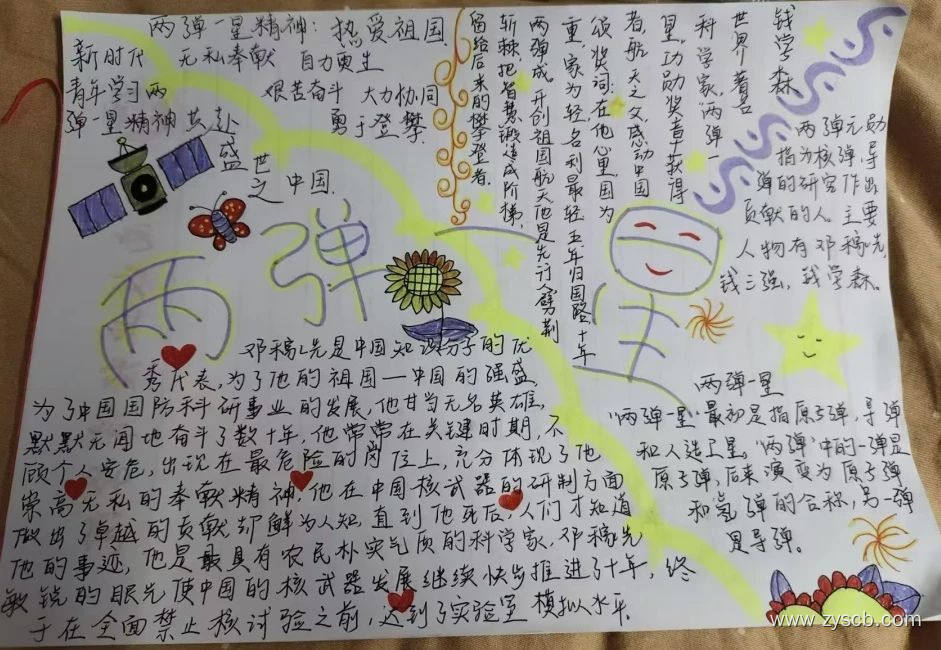 两弹一星精神：热爱祖国
新时代 无私奉献 自力更生
青年学习两 艰苦奋斗 大力协同
弹一星精神共赴 勇于登攀
盛世之中国
钱学森
世界著名
科学家，两弹一
星功勋奖章获得
者，航天之父，感动中国
颁奖词：在他心里，国为
重，家为轻，名利最轻。五年归国路，十年
两弹成。开创祖国航天，他是先行人，劈荆
斩棘，把智慧锻造成阶梯，
留给后来的攀登者。
两弹元勋
指为核弹，导
弹的研究作出
贡献的人。主要
人物有邓稼先
钱三强，钱学森。
两弹一星
邓稼先是中国知识分子的优
秀代表，为了他的祖国—中国的强盛
为了中国国防科研事业的发展，他甘当无名英雄，
默默无闻地奋斗了数十年，他常常在关键时期，不
顾个人安危，出现在最危险的岗位上，充分体现了他
崇高无私的奉献精神，他在中国核武器的研制方面
做出了卓越的贡献，却鲜为人知，直到他死后，人们才知道
他的事迹，他是最具有农民朴实气质的科学家，邓稼先
敏锐的眼光使中国的核武器发展继续快步推进了十年，终
于在全面禁止核试验之前，达到了实验室模拟水平。
两弹一星
“两弹一星”最初是指原子弹，导弹
和人造卫星。“两弹”中的一弹是
原子弹，后来演变为原子弹
和氢弹的合称，另一弹
是导弹。
www.zyscb.com